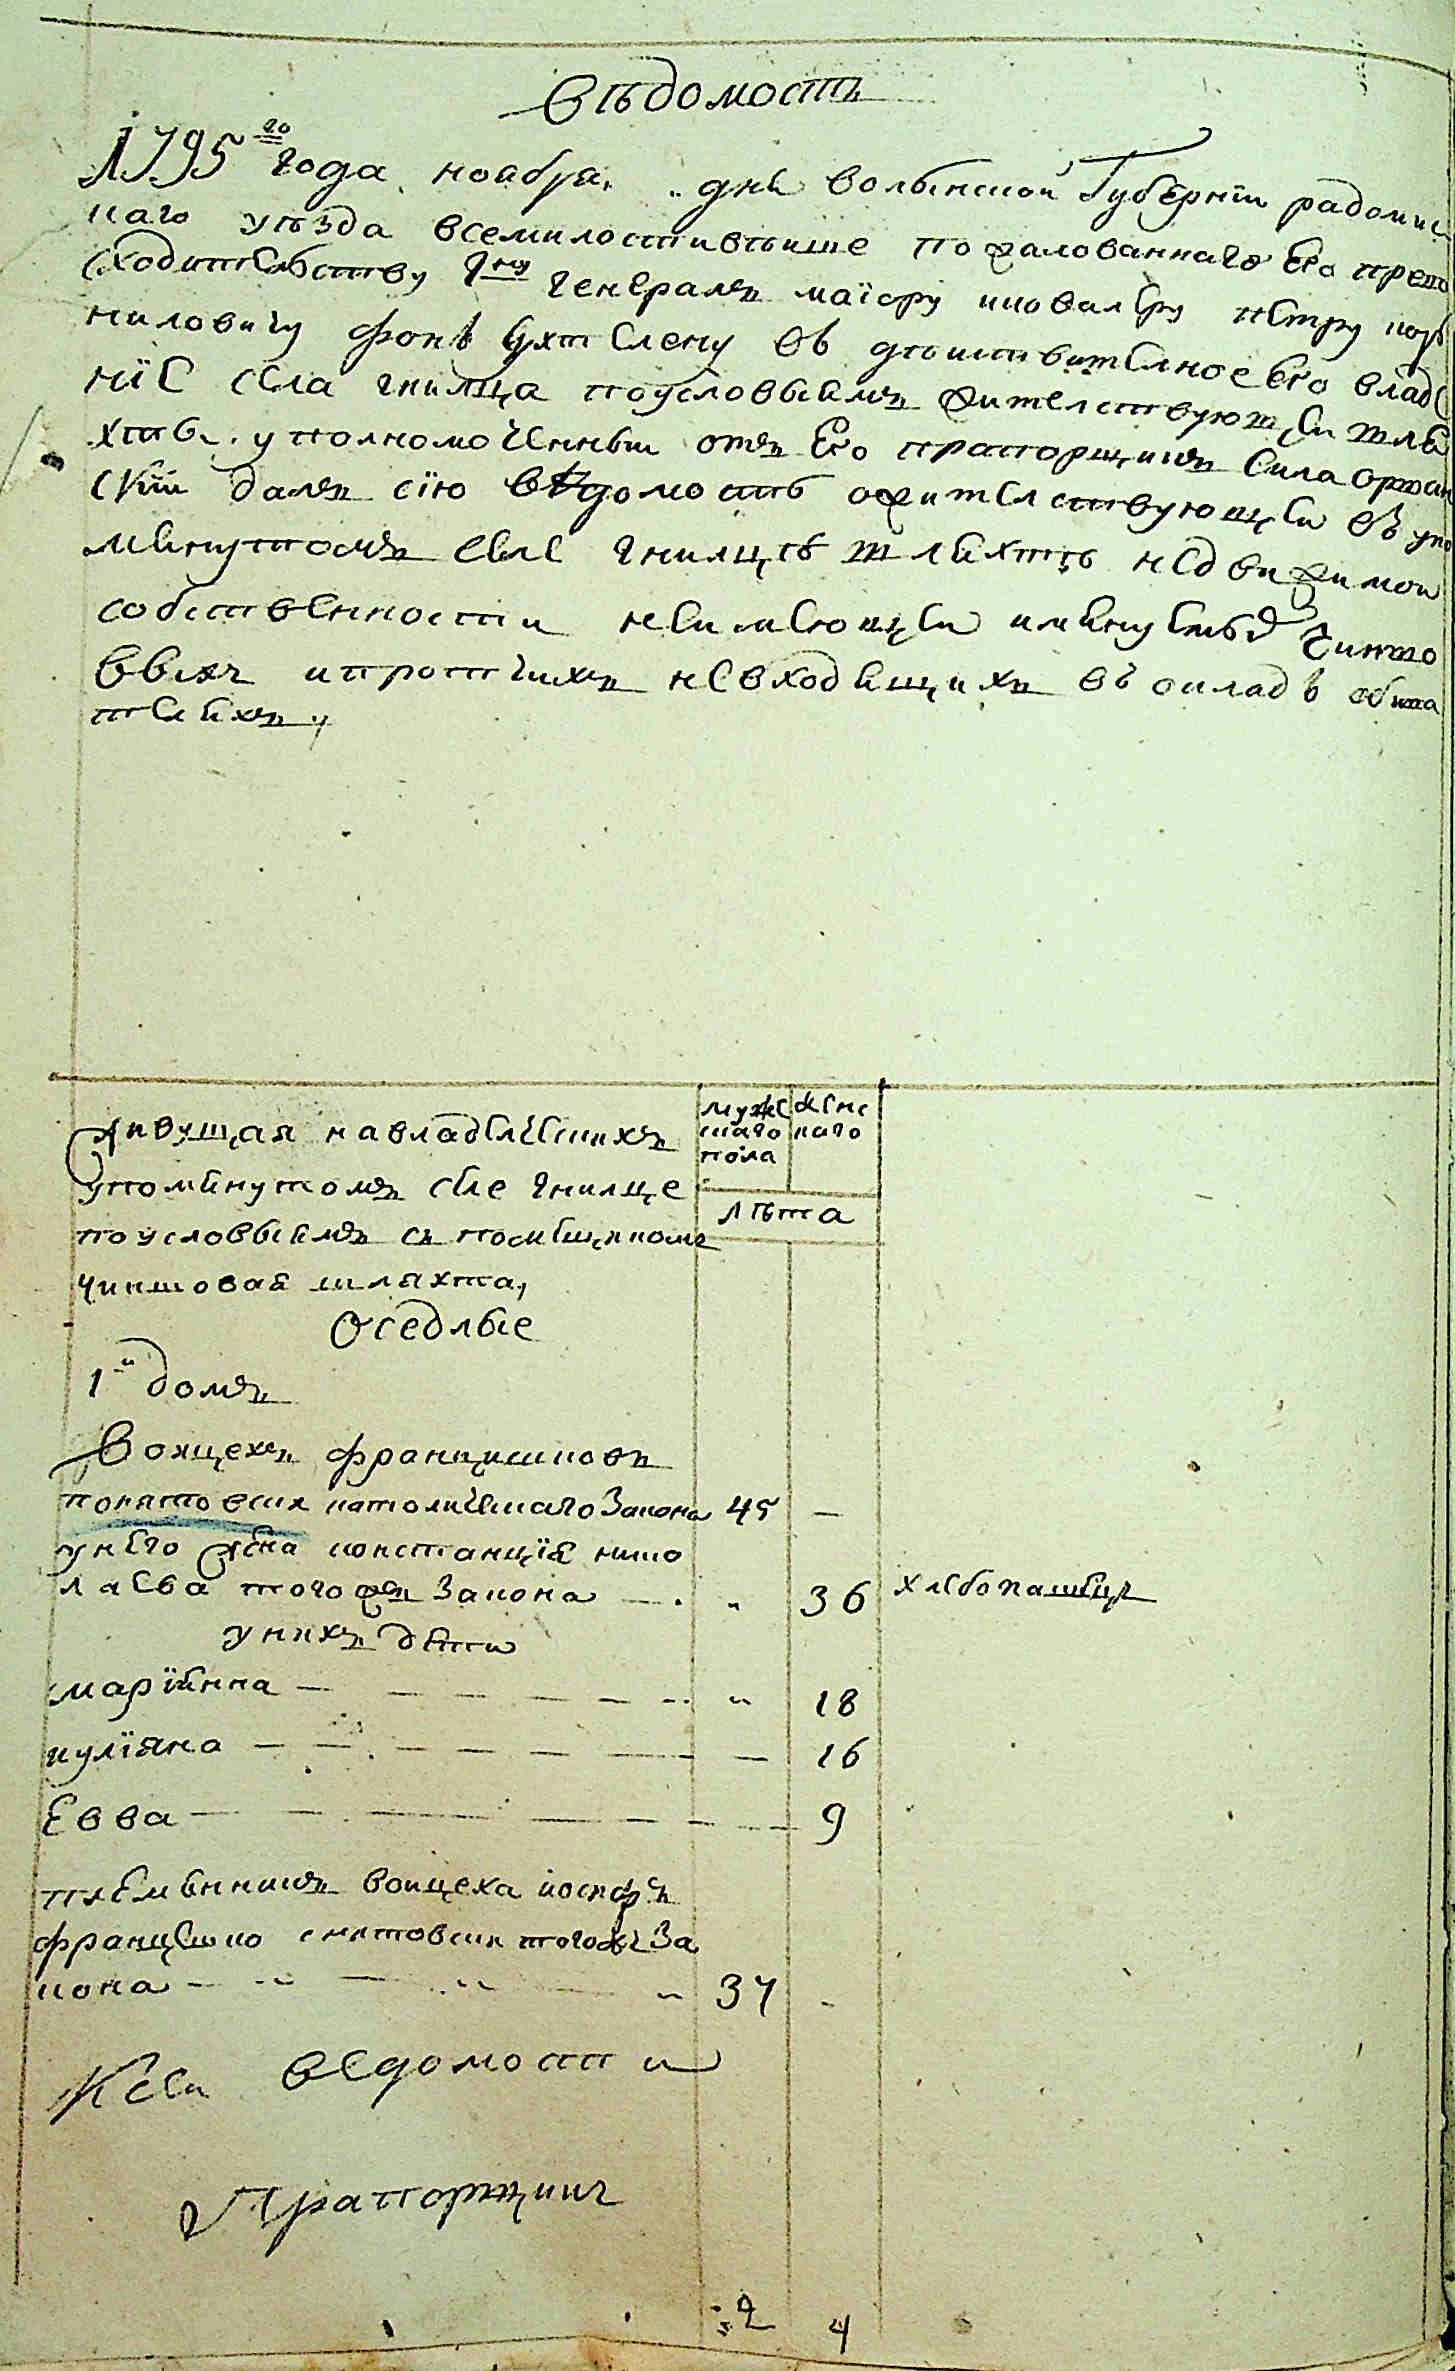 Вѣдомость
1795го года ноября дня Волынской Губерніи радомис
каго уѣзда всемилостивѣише пожалованнаго Его прево
сходителству Гну генералъ маіору икавалеру петру кор
ниловичу фонъ въ дѣиствителное Его владе
ніе села гнилца поусловыямъ жителствующеи шля
хтѣ. уполномоченныи отъ Его прапорщикъ
скіи далъ сію вѣдомость ожителствующеи въ упо
мянутомъ селе гнилцѣ шляхтѣ недвижимои
собственности неимеющеи имянуемыхъ чиншо
выхъ ипротчихъ невходящихъ въ окладъ обита
телехъ,
муже женс
скаго каго
пола
лѣта
Живущая навладелческихъ
упомянутомъ селе гнилце
поусловыямъ съ помещикомъ
чиншовая шляхта,
Оседлые
1й домъ
Воицехъ францишковъ
понятовски католическаго Закона 45 —
унего жена констанція нико
лаева того жъ Закона — . „ 36 хлебопашецъ
унихъ дети
маріянна — — — — — — „ 18
иуліяна — — — — — — — 16
Евва — — — — — — 9
племянникъ воицеха иосифъ
францишко снятовски тогожъ За
кона — „ — „ „ 37 -
Ксеи ведомости
Прапорщикъ
2 4